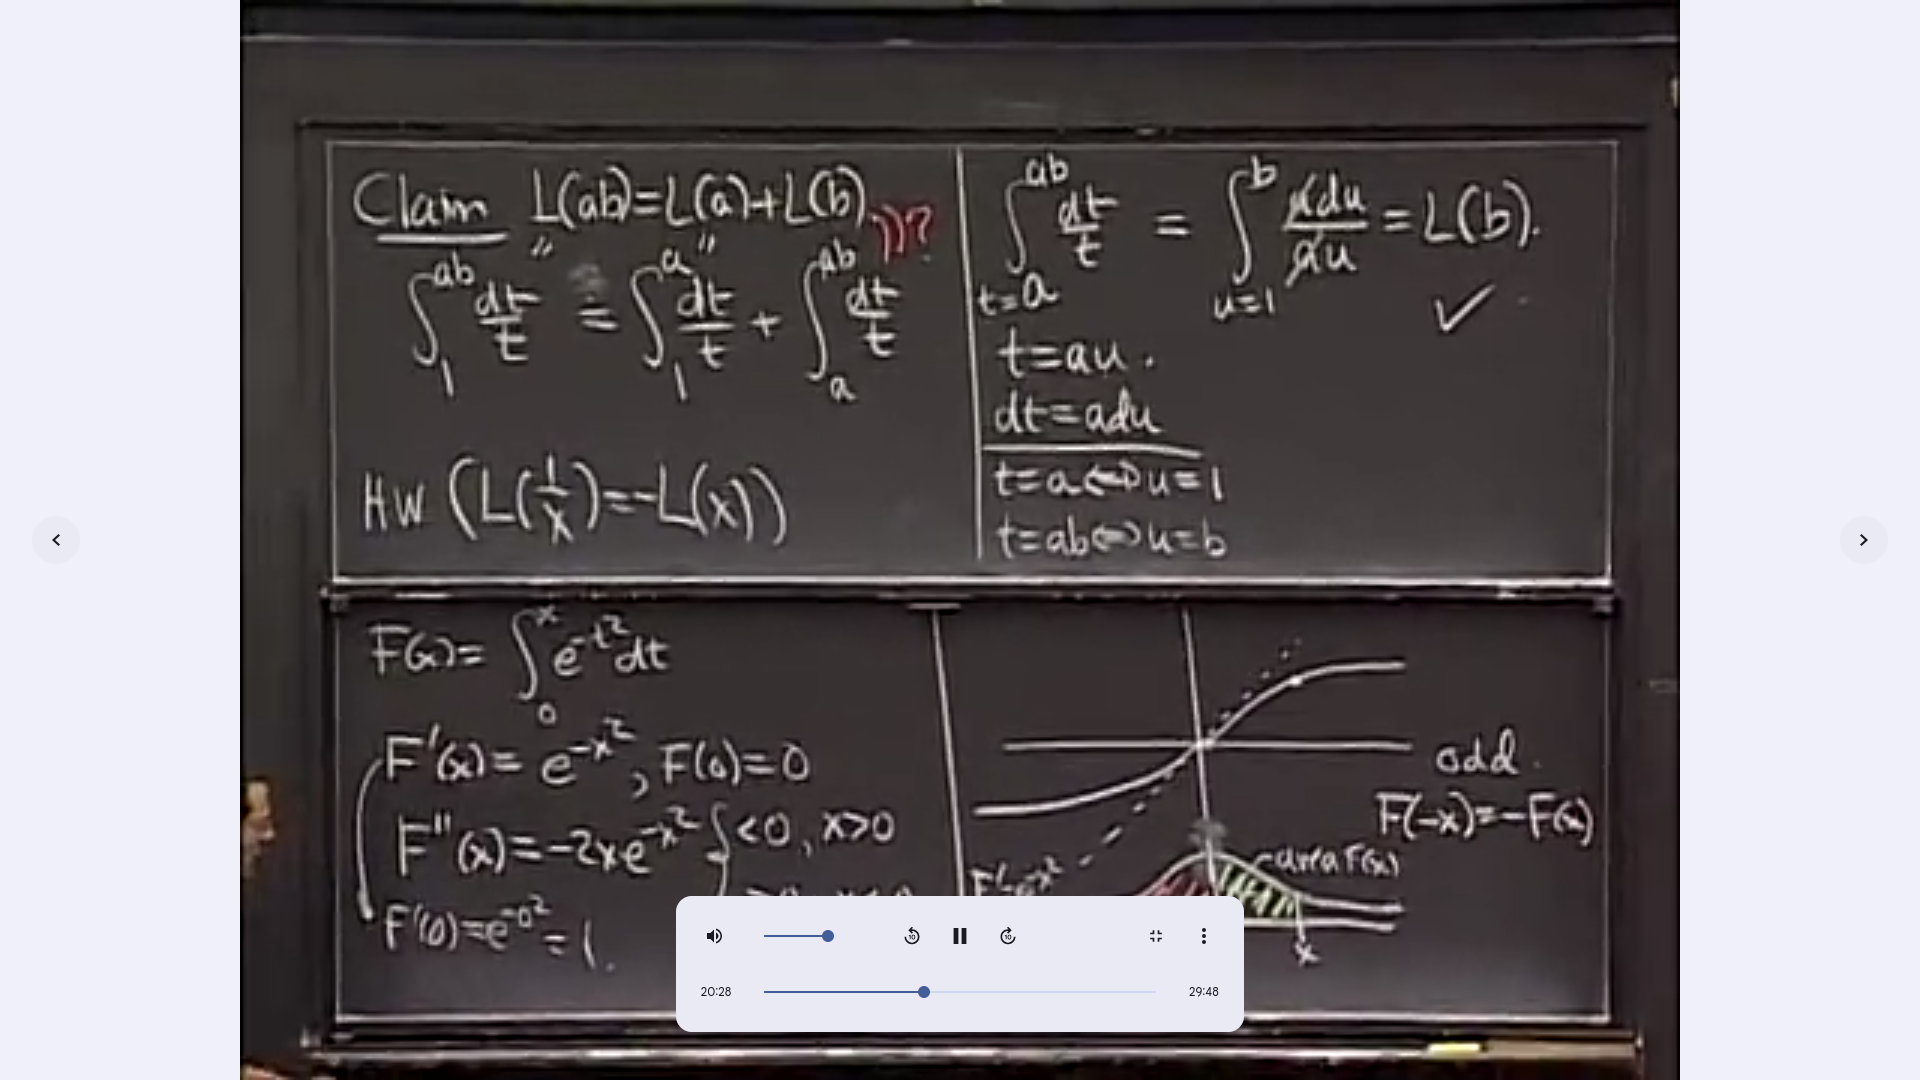 Claim L(ab)=L(a)+L(b))) ?
" "
∫₁^{ab} dt/t = ∫₁^{a} dt/t + ∫_{a}^{ab} dt/t
HW (L(1/x)=-L(x))
∫_{t=a}^{ab} dt/t = ∫_{u=1}^{b} adu/au = L(b).
✓
t=au.
dt=adu
t=a⇔u=1
t=ab⇔u=b
F(x)= ∫₀^{x} e^{-t²}dt
F'(x)= e^{-x²}, F(0)=0
F''(x)=-2xe^{-x²} { <0, x>0
F'(0)=e^{-0²}=1.
odd.
F(-x)=-F(x)
area F(x)
x
10
10
20:28
29:48